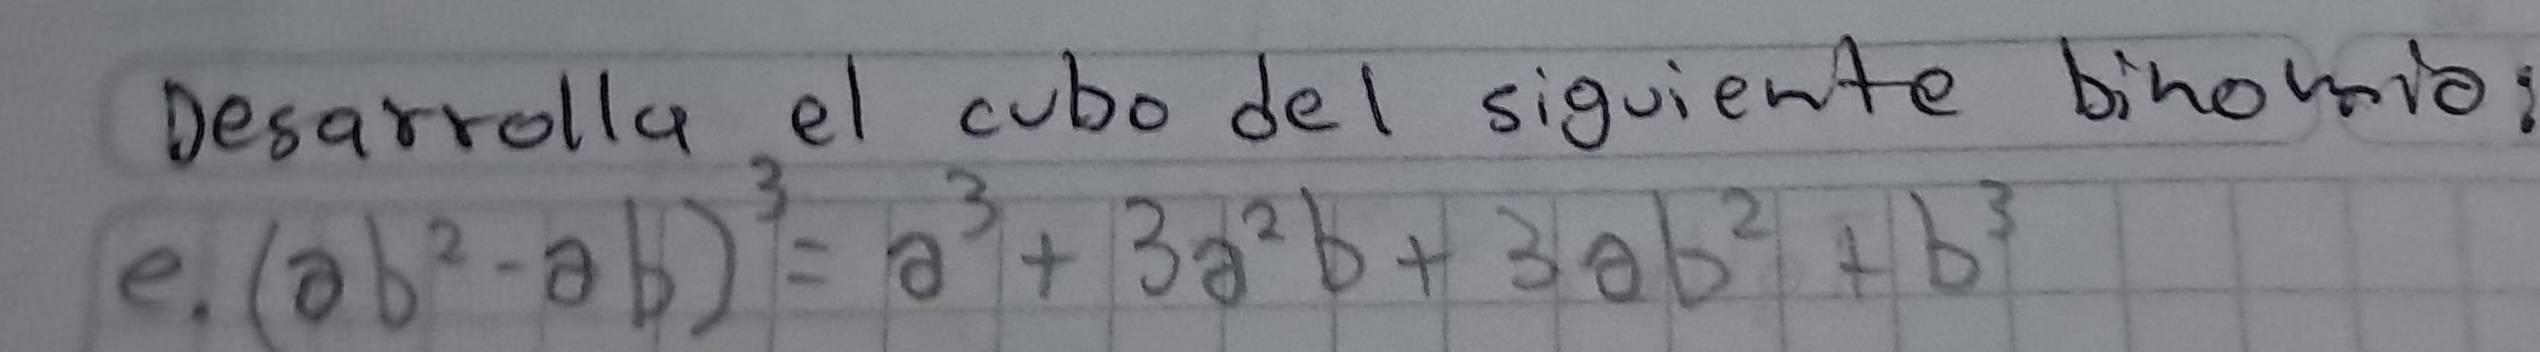 Desarrolla el cubo del siguiente binomio:
e. (ab² - ab)³ = a³ + 3a²b + 3ab² + b³